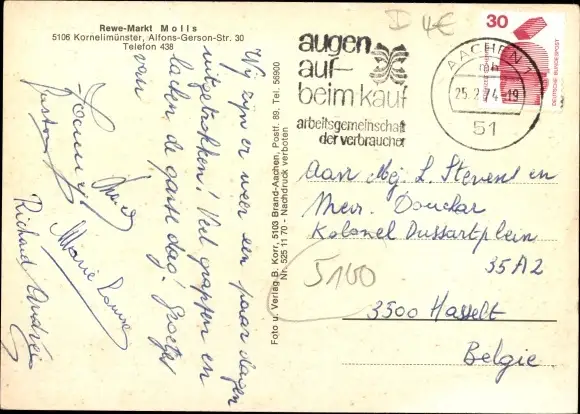 Rewe-Markt Molls
5106 Kornelimünster, Alfons-Gerson-Str. 30
Telefon 438
Wij zijn er weer een paar dagen
uitgetrokken! Veel grappen en
lachen, de ganse dag! Groetjes
van
Marie Louise
Richard André
Foto u. Verlag B. Korr, 5103 Brand-Aachen, Postf. 89, Tel. 56900
Nr. 525 11 70 - Nachdruck verboten
D 4€
augen
auf
beim kauf
arbeitsgemeinschaft
der verbraucher
AACHEN 1
mh
25.2.74-19
51
30
DEUTSCHE BUNDESPOST
Aan Mej. L. Stevens en
Mevr. Donckar
Kolonel Dussartplein
35A2
5100
3500 Hasselt
Belgie